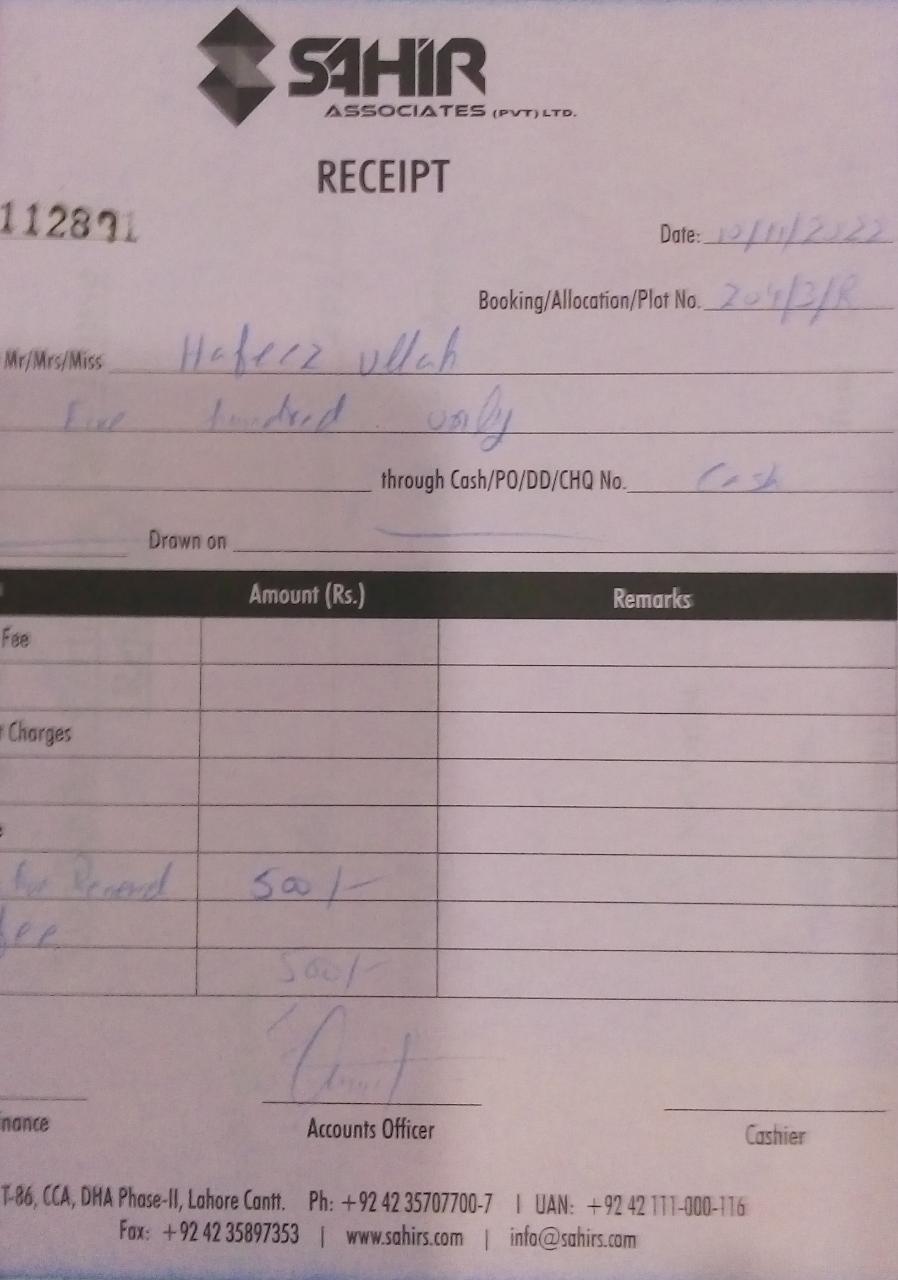 SAHIR
ASSOCIATES (PVT) LTD.
RECEIPT
112891
Date: 10/11/2022
Booking/Allocation/Plot No. 204/3/R
Mr/Mrs/Miss Hafeez Ullah
Five hundred only
through Cash/PO/DD/CHQ No. Cash
Drawn on
Amount (Rs.) Remarks
Fee
Charges
500/-
fee
500/-
nance Accounts Officer Cashier
T-86, CCA, DHA Phase-II, Lahore Cantt. Ph: +92 42 35707700-7 | UAN: +92 42 111-000-116
Fax: +92 42 35897353 | www.sahirs.com | info@sahirs.com